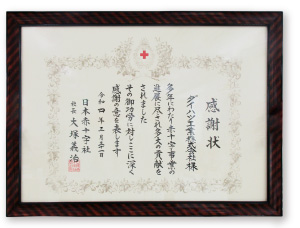 感謝状
ダイハツ工業株式会社様
多年にわたり赤十字事業の
進展に尽され多大の貢献を
されました
その御功労に対しここに深く
感謝の意を表します
令和四年三月三十一日
日本赤十字社
社長 大塚義治